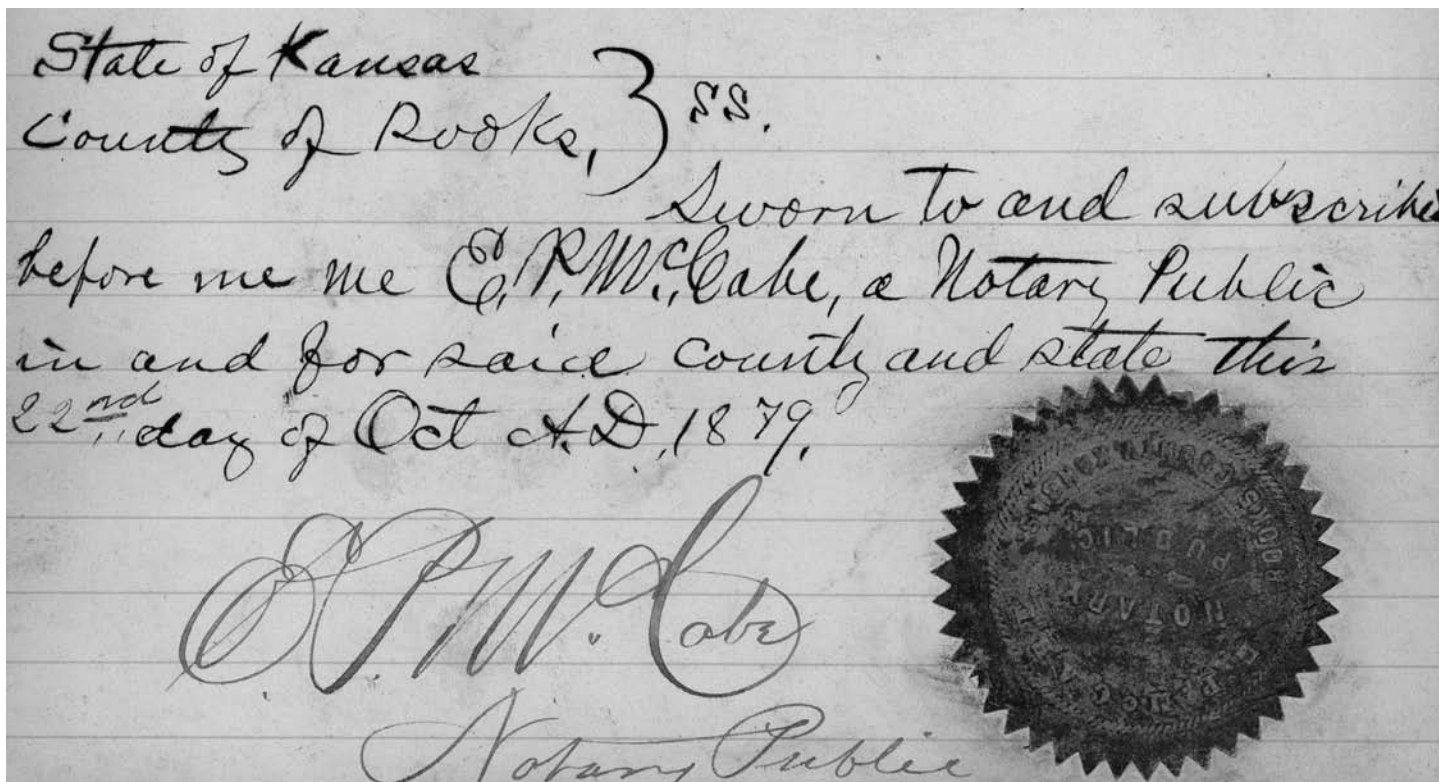 State of Kansas
County of Rooks, } SS.
Sworn to and subscribe
before me me E. P. McCabe, a Notary Public
in and for said county and state this
22nd day of Oct A.D. 1879.
E. P. McCabe
Notary Public
ROOKS COUNTY KANSAS
E. P. MCCABE
NOTARY
PUBLIC